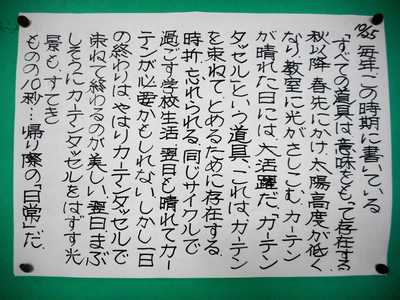 10/25
毎年、この時期に書いている
「すべての道具は、意味をもって存在する」
秋以降、春先にかけ、太陽高度が低く
なり、教室に光がさしこむ。カーテン
が晴れた日には、大活躍だ。「カーテン
タッセル」という道具、これは、カーテン
を束ねて、とめるために存在する。
時折、忘れられる。同じサイクルで
過ごす学校生活、翌日も晴れてカー
テンが必要かもしれない。しかし、一日
の終わりは、やはりカーテンタッセルで
束ねて終わるのが美しい。翌日、まぶ
しそうに、カーテンタッセルをはずす光
景も、すてき。
ものの10秒…帰り際の「日常」だ。